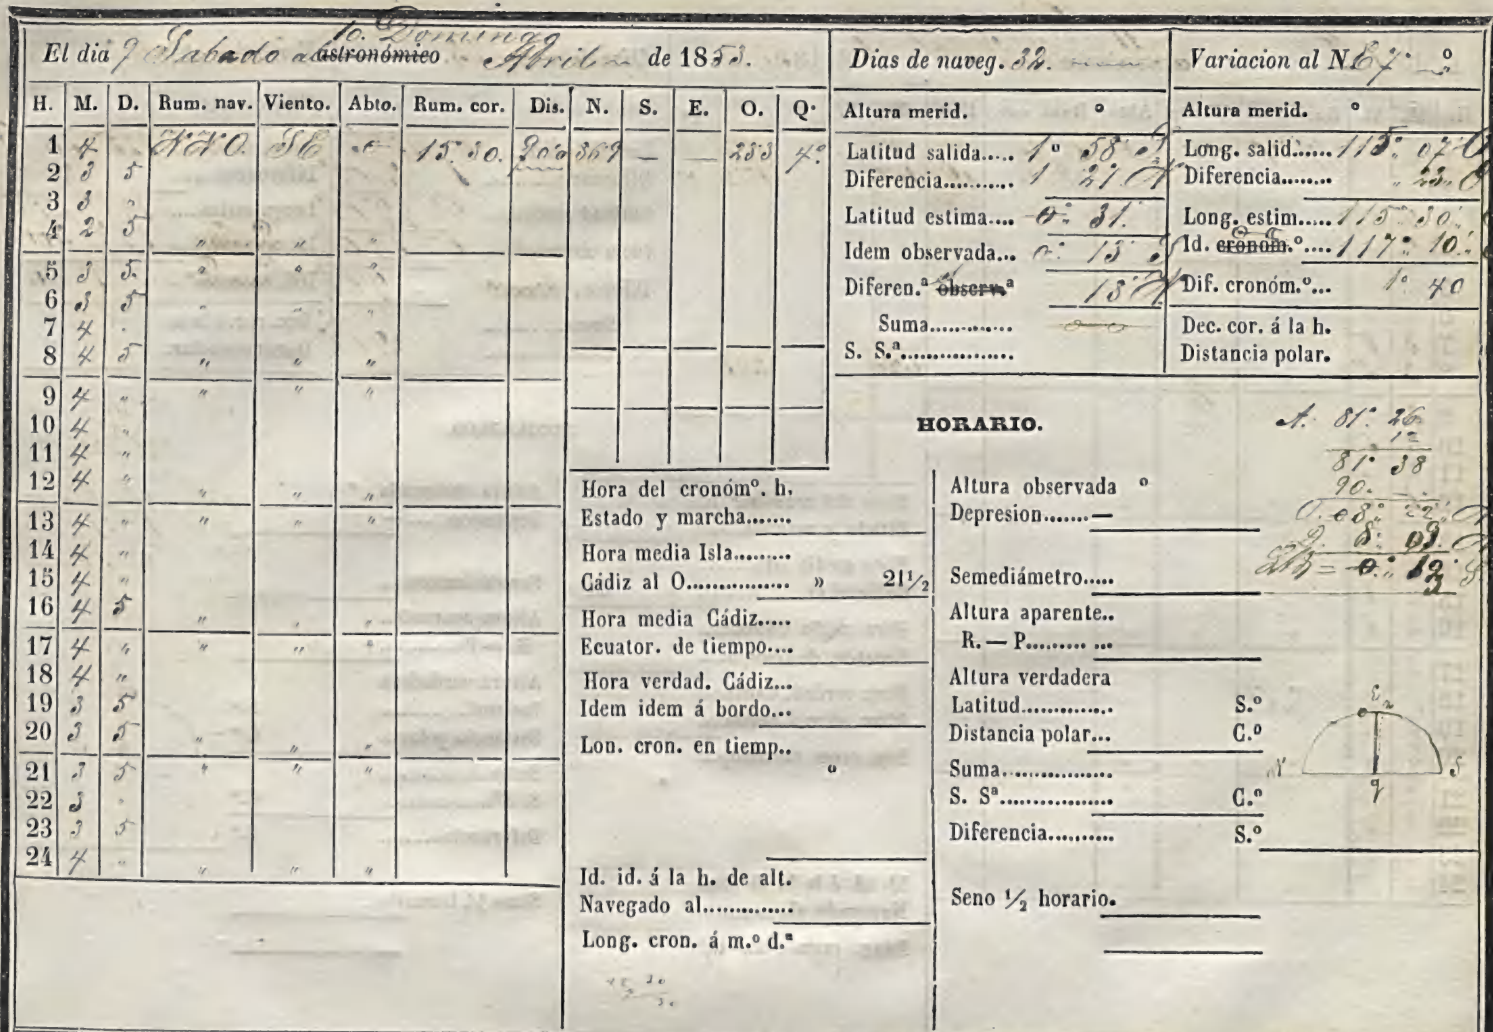 10. Domingo
El dia 9 Sabado al astronómico Abril de 1853.
Dias de naveg. 32.
Variacion al N.E 7. º
H. M. D. Rum. nav. Viento. Abto. Rum. cor. Dis. N. S. E. O. Q.
1 4 NNO. SE " 15. 30. 90'0 869 — — 233 4º
2 3 5
3 3 "
4 2 5 " " "
5 3 5 " " "
6 3 5
7 4 .
8 4 5 " " "
9 4 " " " "
10 4 "
11 4 "
12 4 " " " "
13 4 " " " "
14 4 "
15 4 "
16 4 5 " " "
17 4 " " " "
18 4 "
19 3 5
20 3 5 " " "
21 3 5 " " "
22 3 .
23 3 5
24 4 " " " "
Altura merid. º
Latitud salida..... 1º 58 S
Diferencia........... 1 27 N
Latitud estima.... 0º 31.
Idem observada... 0. 13 S
Diferen.ª observ.ª 18 N
Suma.............
S. S.ª..................
Altura merid. º
Long. salid...... 115. 07 O
Diferencia........ " 23. O
Long. estim..... 115. 30. O
Id. cronóm.º.... 117º 10. O
Dif. cronóm.º... 1º 40
Dec. cor. á la h.
Distancia polar.
HORARIO.
A. 81º 26
12
81º 38
90.
08. 22. N
8. 09. N
0. 13 S
Hora del cronómº. h.
Estado y marcha.......
Hora media Isla.........
Cádiz al O................ » 21½
Hora media Cádiz.....
Ecuator. de tiempo....
Hora verdad. Cádiz...
Idem idem á bordo...
Lon. cron. en tiemp..
º
Id. id. á la h. de alt.
Navegado al.............
Long. cron. á m.º d.ª
Altura observada º
Depresion.......—
Semediámetro.....
Altura aparente..
R. — P......... ...
Altura verdadera
Latitud............. S.º
Distancia polar... C.º
Suma.................
S. Sª.................. C.º
Diferencia.......... S.º
Seno ½ horario.
N S
q